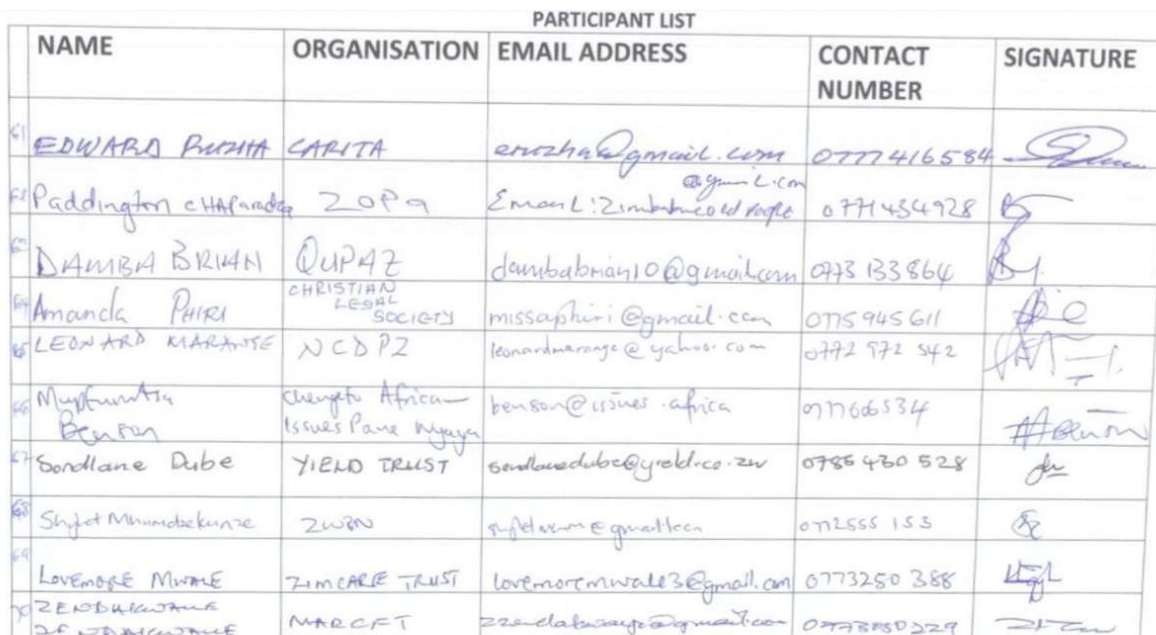 PARTICIPANT LIST
NAME ORGANISATION EMAIL ADDRESS CONTACT NUMBER SIGNATURE
61 EDWARD RUZHA CARITA eruzha@gmail.com 0777416584
62 Paddington CHAParadza ZOPA Email: @gmail.com 0771434928
63 DAMBA BRIAN QUPAZ dambabrian10@gmail.com 0773 133864
64 Amanda PHIRI CHRISTIAN LEGAL SOCIETY missaphiri@gmail.com 0775 945 611
65 LEONARD MARANGE NCDPZ leonardmarange@yahoo.com 0772 972 542
66 Benson Chengeto Africa Issues Pane Nyaya benson@issues.africa
67 Sondlane Dube YIELD TRUST sondlanedube@yield.co.zw 0786 430 528
68 ZWBN 0772555 153
69 LOVEMORE MWALE ZIMCARE TRUST lovemoremwale3@gmail.com 0773250 388
70 MARCFT